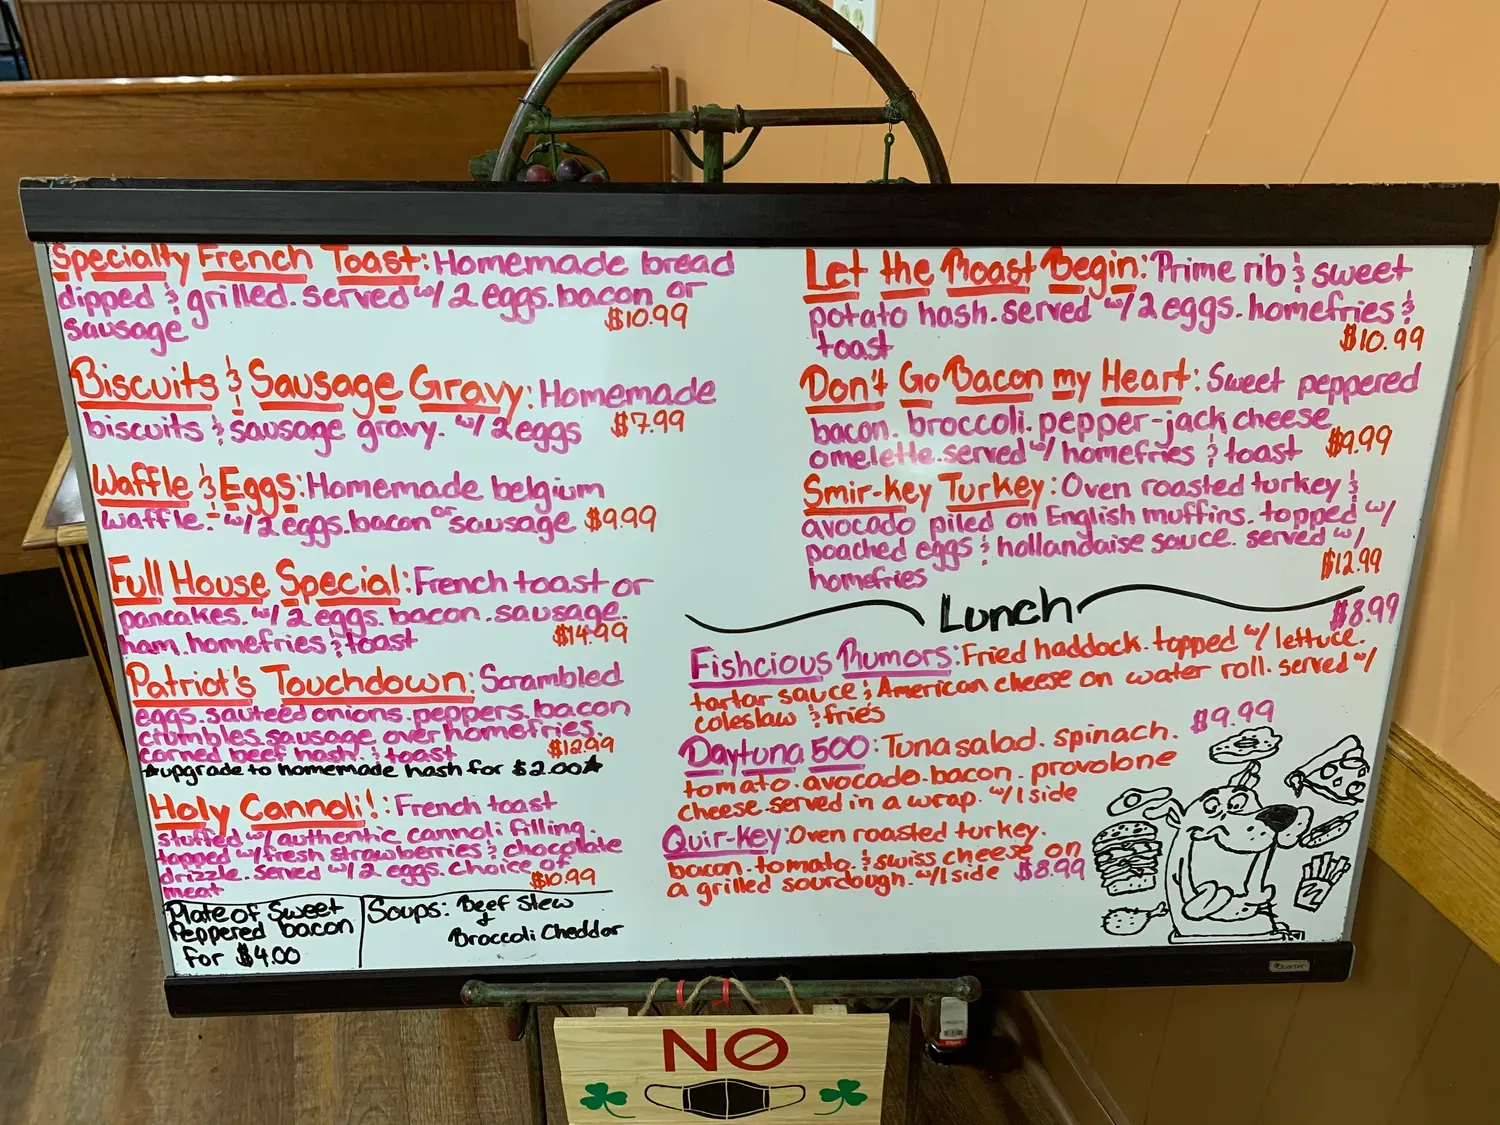 Specialty French Toast: Homemade bread
dipped & grilled. served w/ 2 eggs. bacon or
sausage
$10.99
Biscuits & Sausage Gravy: Homemade
biscuits & sausage gravy. w/ 2 eggs $7.99
Waffle & Eggs: Homemade belgium
waffle. w/ 2 eggs. bacon or sausage $9.99
Full House Special: French toast or
pancakes. w/ 2 eggs. bacon. sausage.
ham. homefries & toast $14.99
Patriot's Touchdown: Scrambled
eggs. sauteed onions. peppers. bacon
crumbles. sausage over homefries.
corned beef hash. & toast $12.99
*upgrade to homemade hash for $2.00*
Holy Cannoli!: French toast
stuffed w/ authentic cannoli filling.
topped w/ fresh strawberries & chocolate
drizzle. served w/ 2 eggs. choice of
meat $10.99
Plate of Sweet
Peppered bacon
for $4.00
Soups: Beef Stew
&
Broccoli Cheddar
Let the Roast Begin: Prime rib & sweet
potato hash. served w/ 2 eggs. homefries &
toast $10.99
Don't Go Bacon my Heart: Sweet peppered
bacon. broccoli. pepper-jack cheese
omelette. served w/ homefries & toast $9.99
Smir-key Turkey: Oven roasted turkey &
avocado piled on English muffins. topped w/
poached eggs & hollandaise sauce. served w/
homefries $12.99
Lunch
$8.99
Fishcious Rumors: Fried haddock. topped w/ lettuce.
tartar sauce & American cheese on water roll. served w/
coleslaw & fries
Daytuna 500: Tuna salad. spinach. $9.99
tomato. avocado. bacon. provolone
cheese. served in a wrap. w/ 1 side
Quir-Key: Oven roasted turkey.
bacon. tomato. & swiss cheese on
a grilled sourdough. w/ 1 side $8.99
Quartet
NO